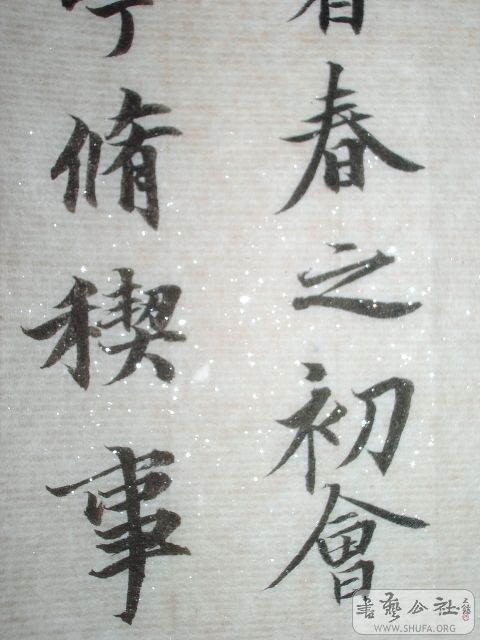 春之初會
脩稧事
書藝公社
WWW.SHUFA.ORG